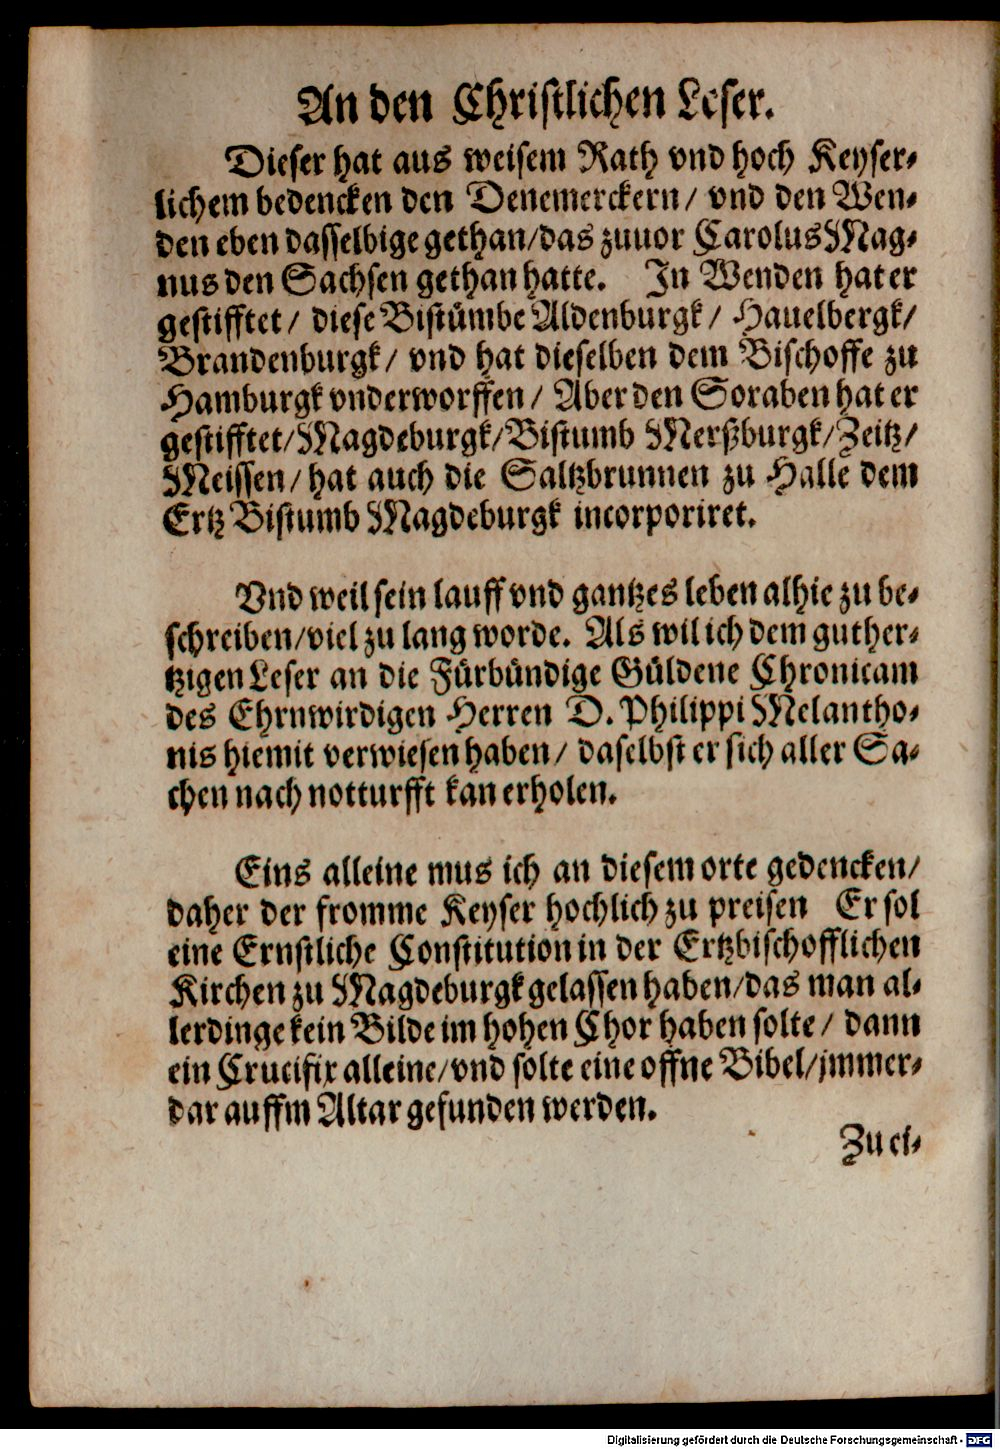 An den Christlichen Leser.
Dieser hat aus weisem Rath vnd hoch Keyser-
lichem bedencken den Denemerckern/ vnd den Wen-
den eben dasselbige gethan/das zuuor Carolus Mag-
nus den Sachsen gethan hatte. In Wenden hat er
gestifftet/ diese Bistümbe Aldenburgk/ Hauelbergk/
Brandenburgk/ vnd hat dieselben dem Bischoffe zu
Hamburgk vnderworffen/ Aber den Soraben hat er
gestifftet/Magdeburgk/Bistumb Merßburgk/Zeitz/
Meissen/ hat auch die Saltzbrunnen zu Halle dem
Ertz Bistumb Magdeburgk incorporiret.
Vnd weil sein lauff vnd gantzes leben alhie zu be-
schreiben/viel zu lang worde. Als wil ich dem guther-
tzigen Leser an die Fürbündige Güldene Chronicam
des Ehrnwirdigen Herren D. Philippi Melantho-
nis hiemit verwiesen haben/ daselbst er sich aller Sa-
chen nach notturfft kan erholen.
Eins alleine mus ich an diesem orte gedencken/
daher der fromme Keyser hochlich zu preisen Er sol
eine Ernstliche Constitution in der Ertzbischofflichen
Kirchen zu Magdeburgk gelassen haben/das man al-
lerdinge kein Bilde im hohen Chor haben solte/ dann
ein Crucifix alleine/vnd solte eine offne Bibel/jmmer-
dar auffm Altar gefunden werden.
Zu ei-
Digitalisierung gefördert durch die Deutsche Forschungsgemeinschaft - DFG